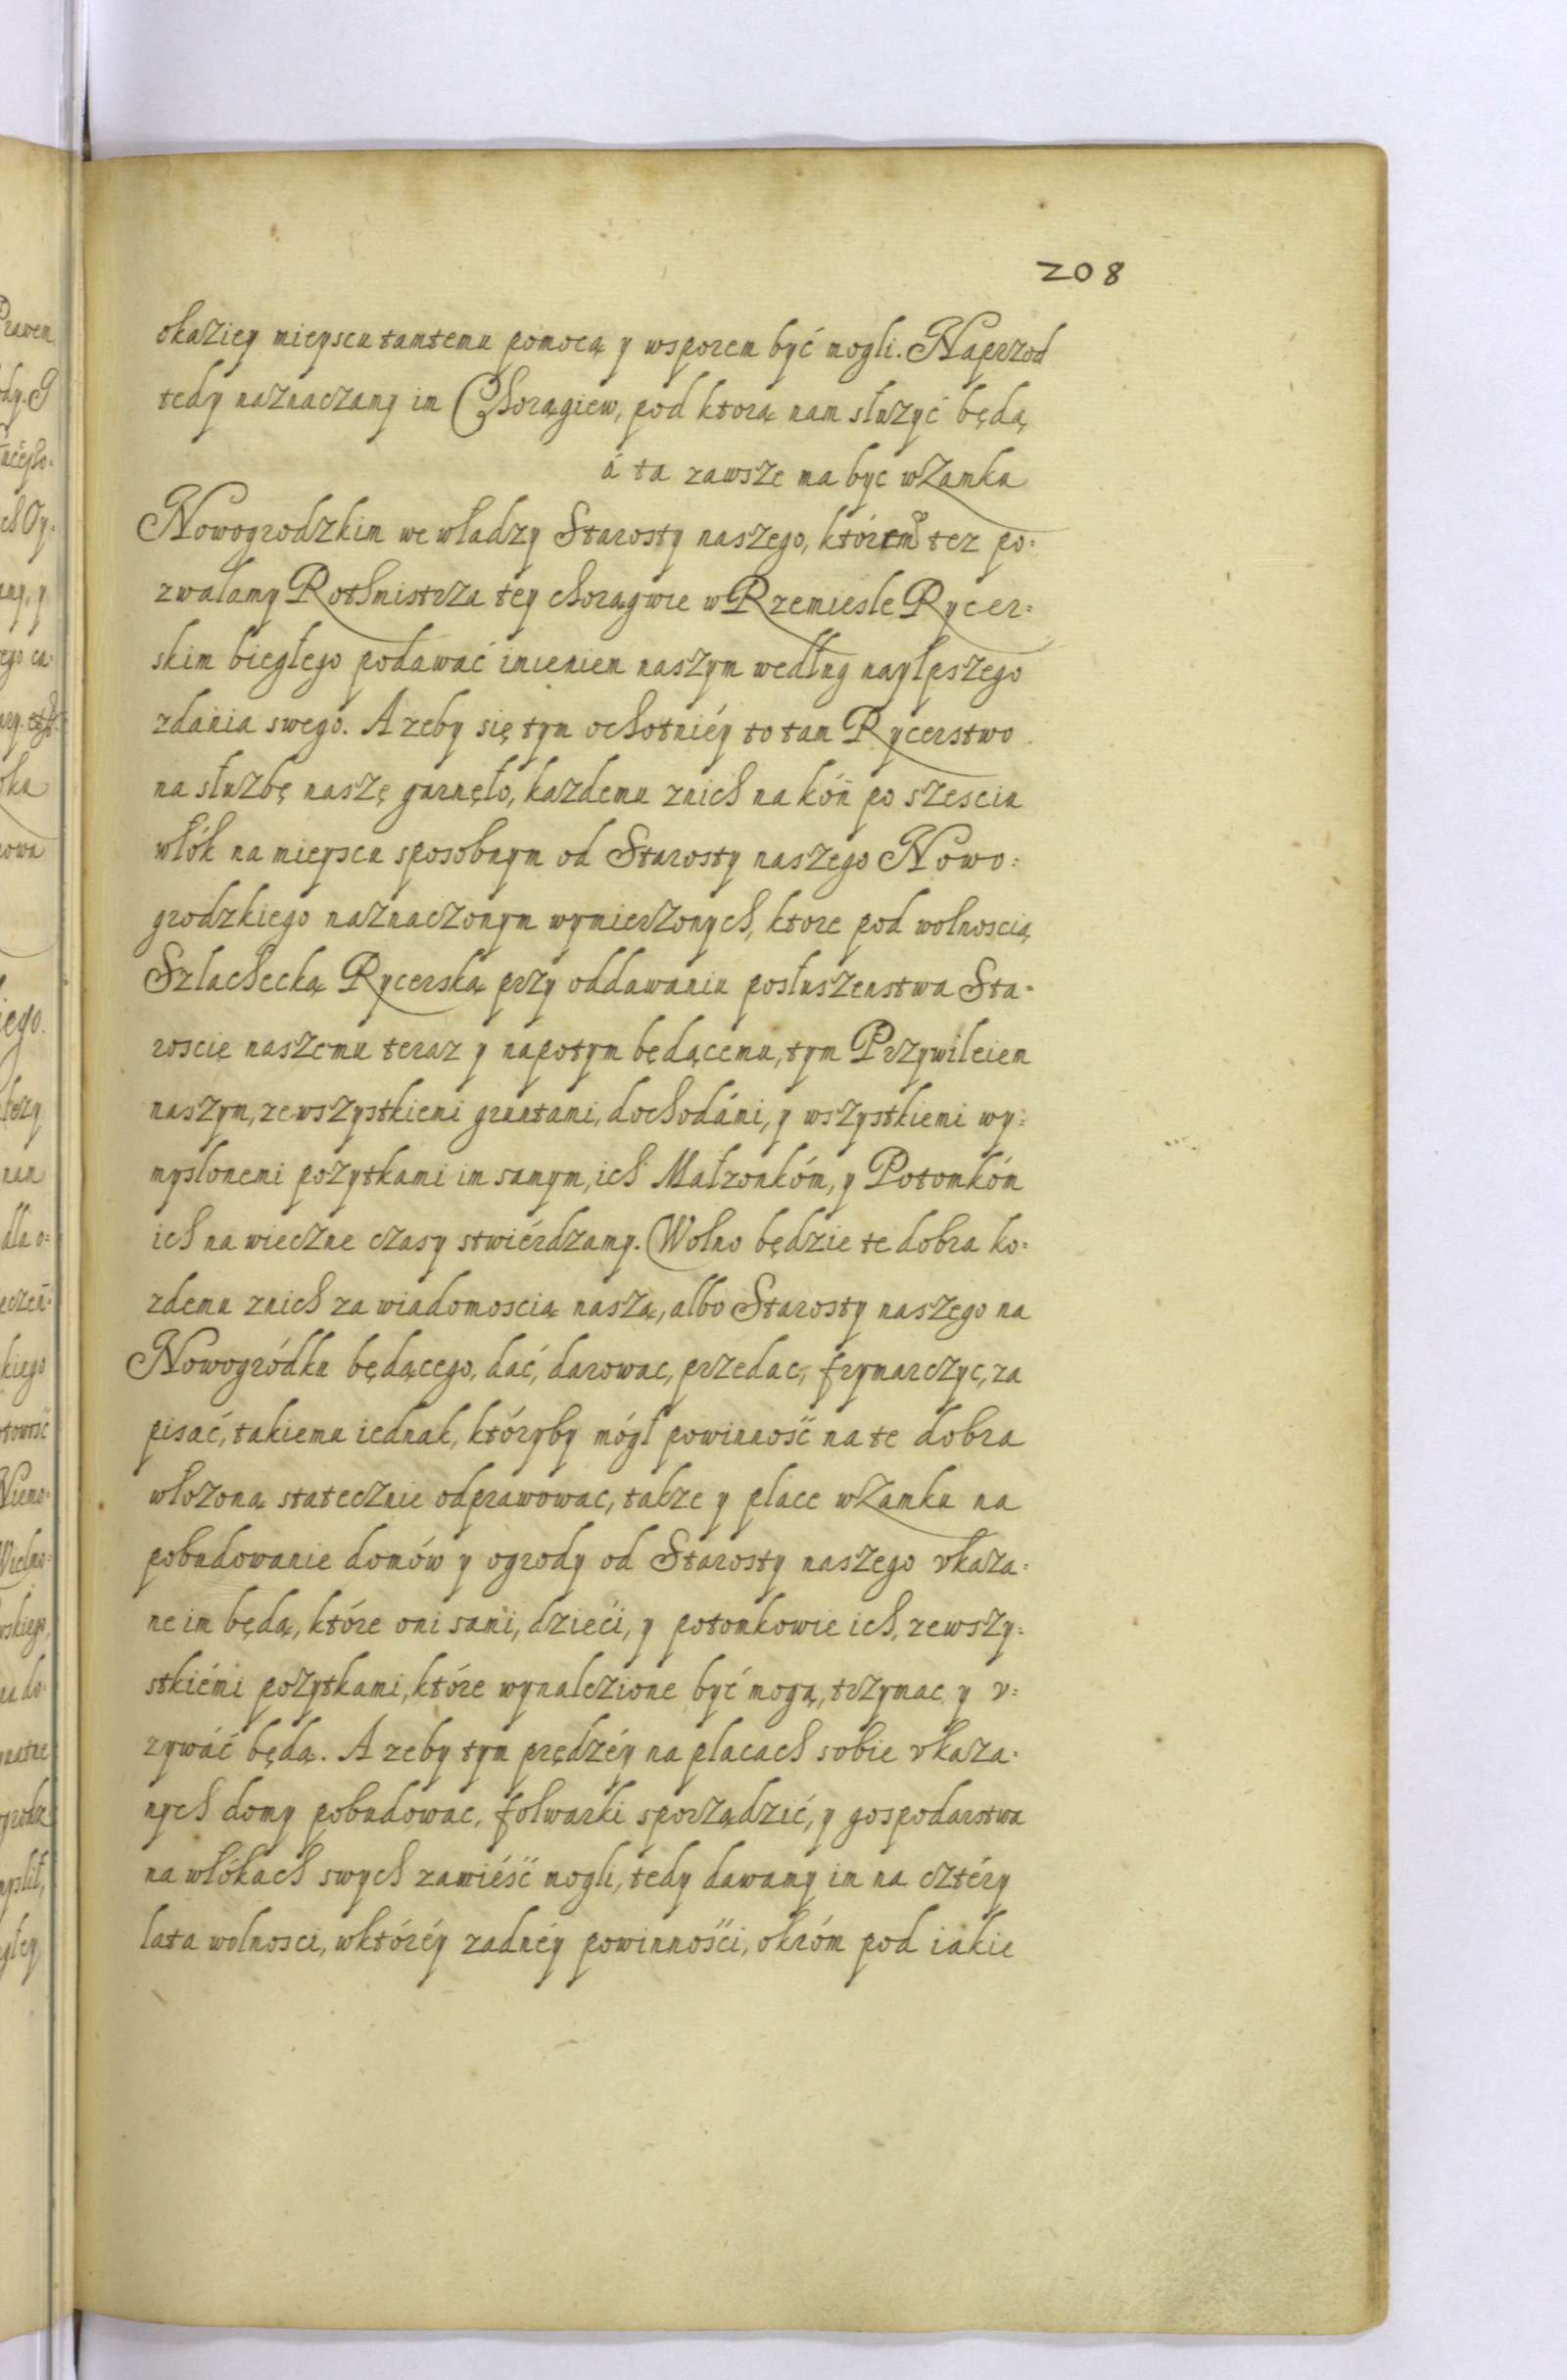 208
okaziey mieyscu tamtemu pomocą y wsporem być mogli. Naprzod
tedy naznaczamy im Chorągiew, pod ktorą nam służyć będą
á ta zawsze ma byc w Zamku
Nowogrodzkim we władzy Starosty naszego, którem͛u tez po=
zwalamy Rothmistrza tey chorągwie w Rzemiesle Rycer=
skim biegłego podawać imieniem naszym według naylpszego
zdania swego. A zeby się tym ochotniéy to tam Rycerstwo
na służbę naszę garnęło, kazdemu znich na kóń po szesciu
włók na mieyscu sposobnym od Starosty naszego Nowo=
grodzkiego naznaczonym wymierzonych, ktore pod wolnoscią
Szlachecką Rycerską przy oddawaniu posłuszenstwa Sta=
roscie naszemu teraz y napotym będącemu, tym Przywileiem
naszym, zewszystkiemi gruntami, dochodámi, y wszystkiemi wy=
mysloneni pozytkami im samym, ich Małzonkóm, y Potomkóm
ich na wieczne czasy stwiérdzamy. Wolno będzie te dobra ko=
zdemu znich za wiadomoscią naszą, albo Starosty naszego na
Nowogródku będącego, dać, darowac, przedac, frymarczyc, za
pisać, takiemu iednak, któryby mógł powinność na te dobra
włozoną statecznie odprawowac, takze y place w Zamku na
pobudowanie domów y ogrody od Starosty naszego vkaza=
ne im będą, które oni sami, dzieći, y potomkowie ich, zewszy=
stkiémi pozytkami, które wynalezione być mogą, trzymac y v=
zywáć będą. A zeby tym prędzéy na placach sobie vkaza=
nych domy pobudowac, folwarki sporządzić, y gospodarstwa
na włókach swych zawiéść mogli, tedy dawamy im na cztéry
lata wolnosci, wktóréy zadnéy powinnośći, okróm pod iakie